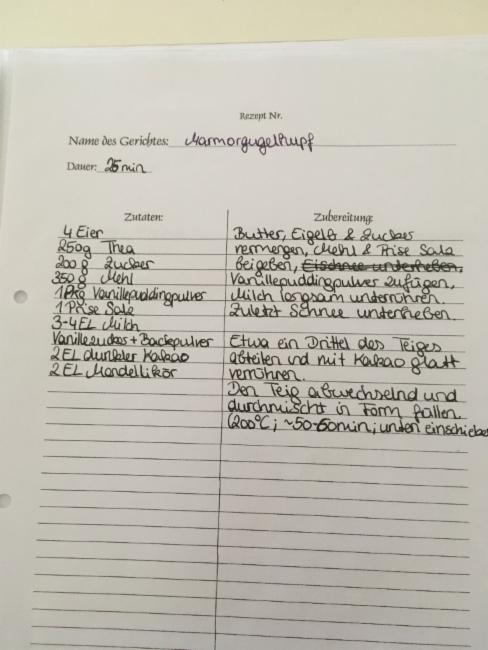 Rezept Nr.
Name des Gerichtes: Marmorgugelhupf
Dauer: 25min
Zutaten:
4 Eier
250g Thea
200 g Zucker
350 g Mehl
1 Pkg Vanillepuddingpulver
1 Prise Salz
3-4 EL Milch
Vanillezucker + Backpulver
2 EL dunkler Kakao
2 EL Mandellikör
Zubereitung:
Butter, Eigelb & Zucker
vermengen, Mehl & Prise Salz
beigeben, Eischnee unterheben,
Vanillepuddingpulver zufügen,
Milch langsam unterrühren.
Zuletzt Schnee unterheben.
Etwa ein Drittel des Teiges
abteilen und mit Kakao glatt
verrühren.
Den Teig abwechselnd und
durchmischt in Form füllen.
(200°C; ~50-60min; unten einschieben